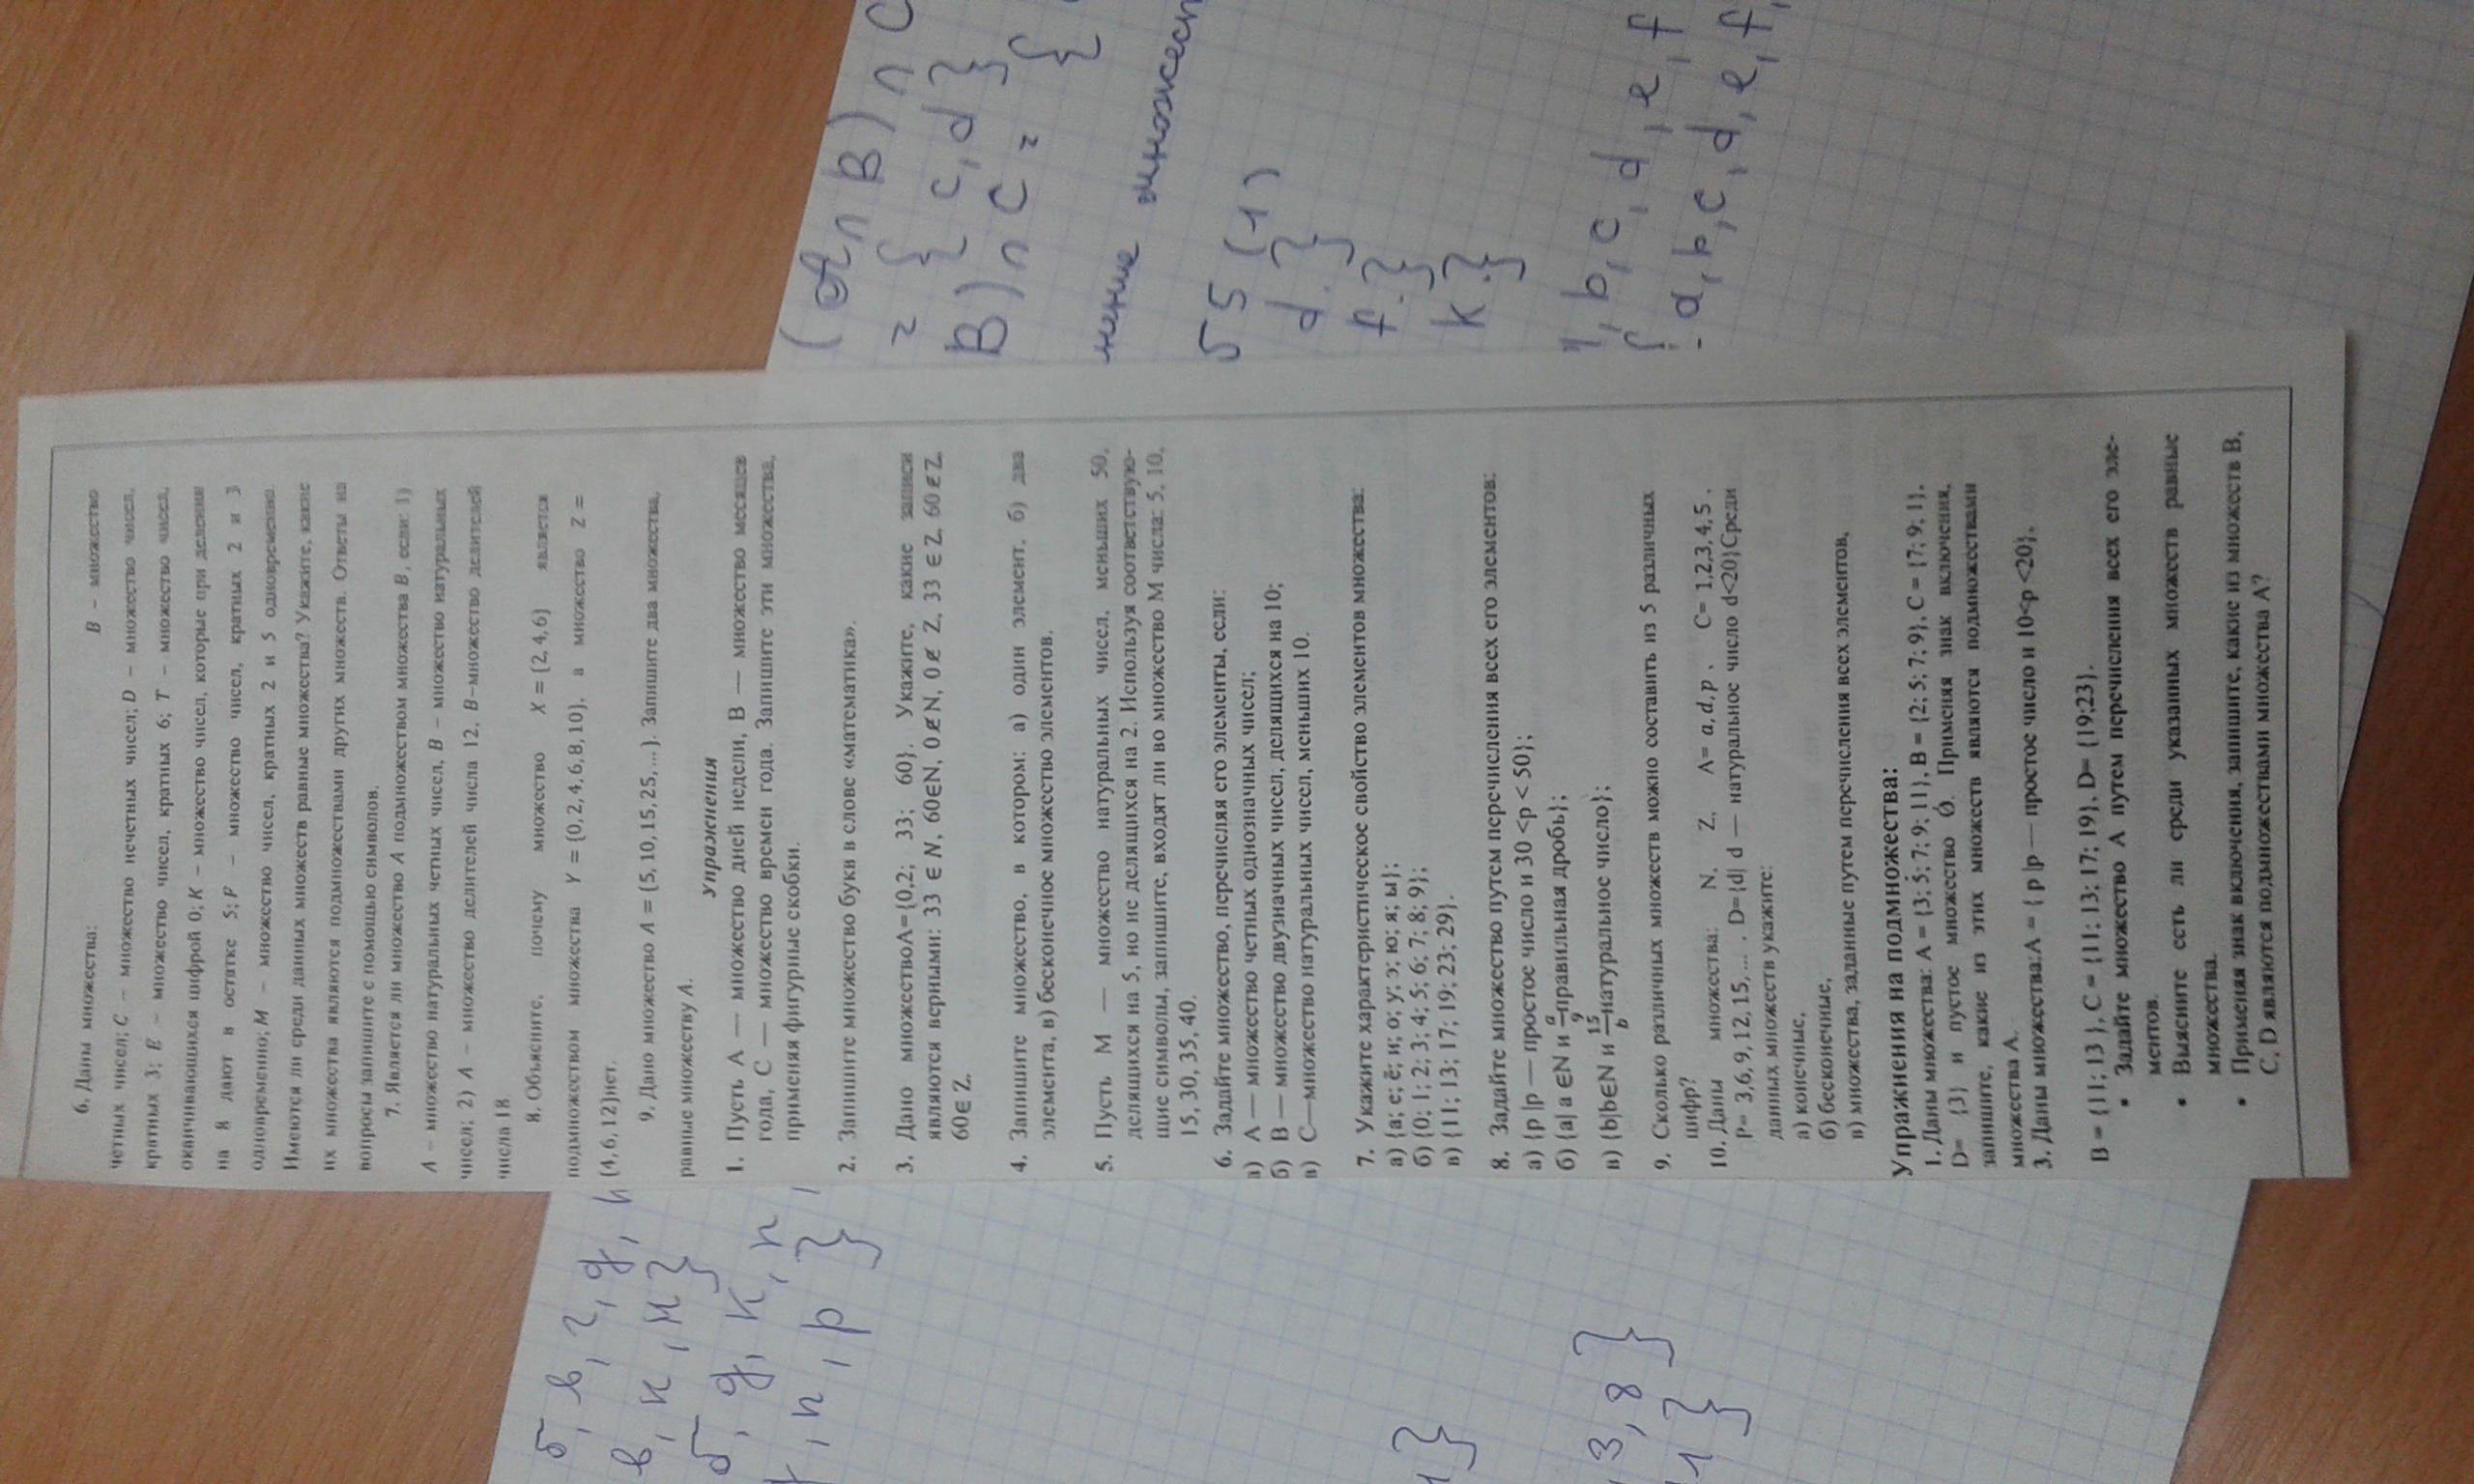 6. Даны множества: B – множество
четных чисел; C – множество нечетных чисел; D – множество чисел,
кратных 3; E – множество чисел, кратных 6; T – множество чисел,
оканчивающихся цифрой 0; K – множество чисел, которые при делении
на 8 дают в остатке 5; P – множество чисел, кратных 2 и 3
одновременно; M – множество чисел, кратных 2 и 5 одновременно.
Имеются ли среди данных множеств равные множества? Укажите, какие
их множества являются подмножествами других множеств. Ответы на
вопросы запишите с помощью символов.
7. Является ли множество A подмножеством множества B, если: 1)
A – множество натуральных четных чисел, B – множество натуральных
чисел; 2) A – множество делителей числа 12, B–множество делителей
числа 18.
8. Объясните, почему множество X = {2,4,6} является
подмножеством множества Y = {0,2,4,6,8,10}, а множество Z =
{4,6,12}нет.
9. Дано множество A = {5,10,15,25,...}. Запишите два множества,
равные множеству A.
Упражнения
1. Пусть А — множество дней недели, В — множество месяцев
года, С — множество времен года. Запишите эти множества,
применяя фигурные скобки.
2. Запишите множество букв в слове «математика».
3. Дано множествоА={0,2; 33; 60}. Укажите, какие записи
являются верными: 33 ∈ N, 60∈N, 0∉N, 0∉ Z, 33 ∈ Z, 60∉Z,
60∈ Z.
4. Запишите множество, в котором: а) один элемент, б) два
элемента, в) бесконечное множество элементов.
5. Пусть М — множество натуральных чисел, меньших 50,
делящихся на 5, но не делящихся на 2. Используя соответствую-
щие символы, запишите, входят ли во множество М числа: 5, 10,
15, 30, 35, 40.
6. Задайте множество, перечисляя его элементы, если:
а) А — множество четных однозначных чисел;
б) В — множество двузначных чисел, делящихся на 10;
в) С—множество натуральных чисел, меньших 10.
7. Укажите характеристическое свойство элементов множества:
а) {а; е; ё; и; о; у; э; ю; я; ы};
б) {0; 1; 2; 3; 4; 5; 6; 7; 8; 9};
в) {11; 13; 17; 19; 23; 29}.
8. Задайте множество путем перечисления всех его элементов:
а) {p |p — простое число и 30 <p < 50};
б) {a| a ∈N и a/9–правильная дробь};
в) {b|b∈N и 15/b–натуральное число};
9. Сколько различных множеств можно составить из 5 различных
цифр?
10. Даны множества: N, Z, A= a,d,p , C= 1,2,3,4,5 ,
P= 3,6,9,12,15,... , D={d| d — натуральное число d<20}Среди
данных множеств укажите:
а) конечные,
б) бесконечные,
в) множества, заданные путем перечисления всех элементов,
Упражнения на подмножества:
1. Даны множества: А = {3; 5; 7; 9; 11}, В = {2; 5; 7; 9}, С = {7; 9; 1},
D= {3} и пустое множество Ǿ. Применяя знак включения,
запишите, какие из этих множеств являются подмножествами
множества А.
3. Даны множества:А = { p |p — простое число и 10<p <20},
В = {11; 13 }, С = {11; 13; 17; 19}, D= {19;23}.
• Задайте множество А путем перечисления всех его эле-
ментов.
• Выясните есть ли среди указанных множеств равные
множества.
• Применяя знак включения, запишите, какие из множеств В,
С, D являются подмножествами множества А?
(A ∩ B) ∩ C
= { c, d }
B) ∩ C = {
нение множест
55 (1)
d. }
f. }
k. }
, b, c, d, e, f
a, b, c, d, e, f,
б, в, г, д,
в, к, м }
б, д, к, п
, п, р }
1 }
, 3, 8 }
1 }